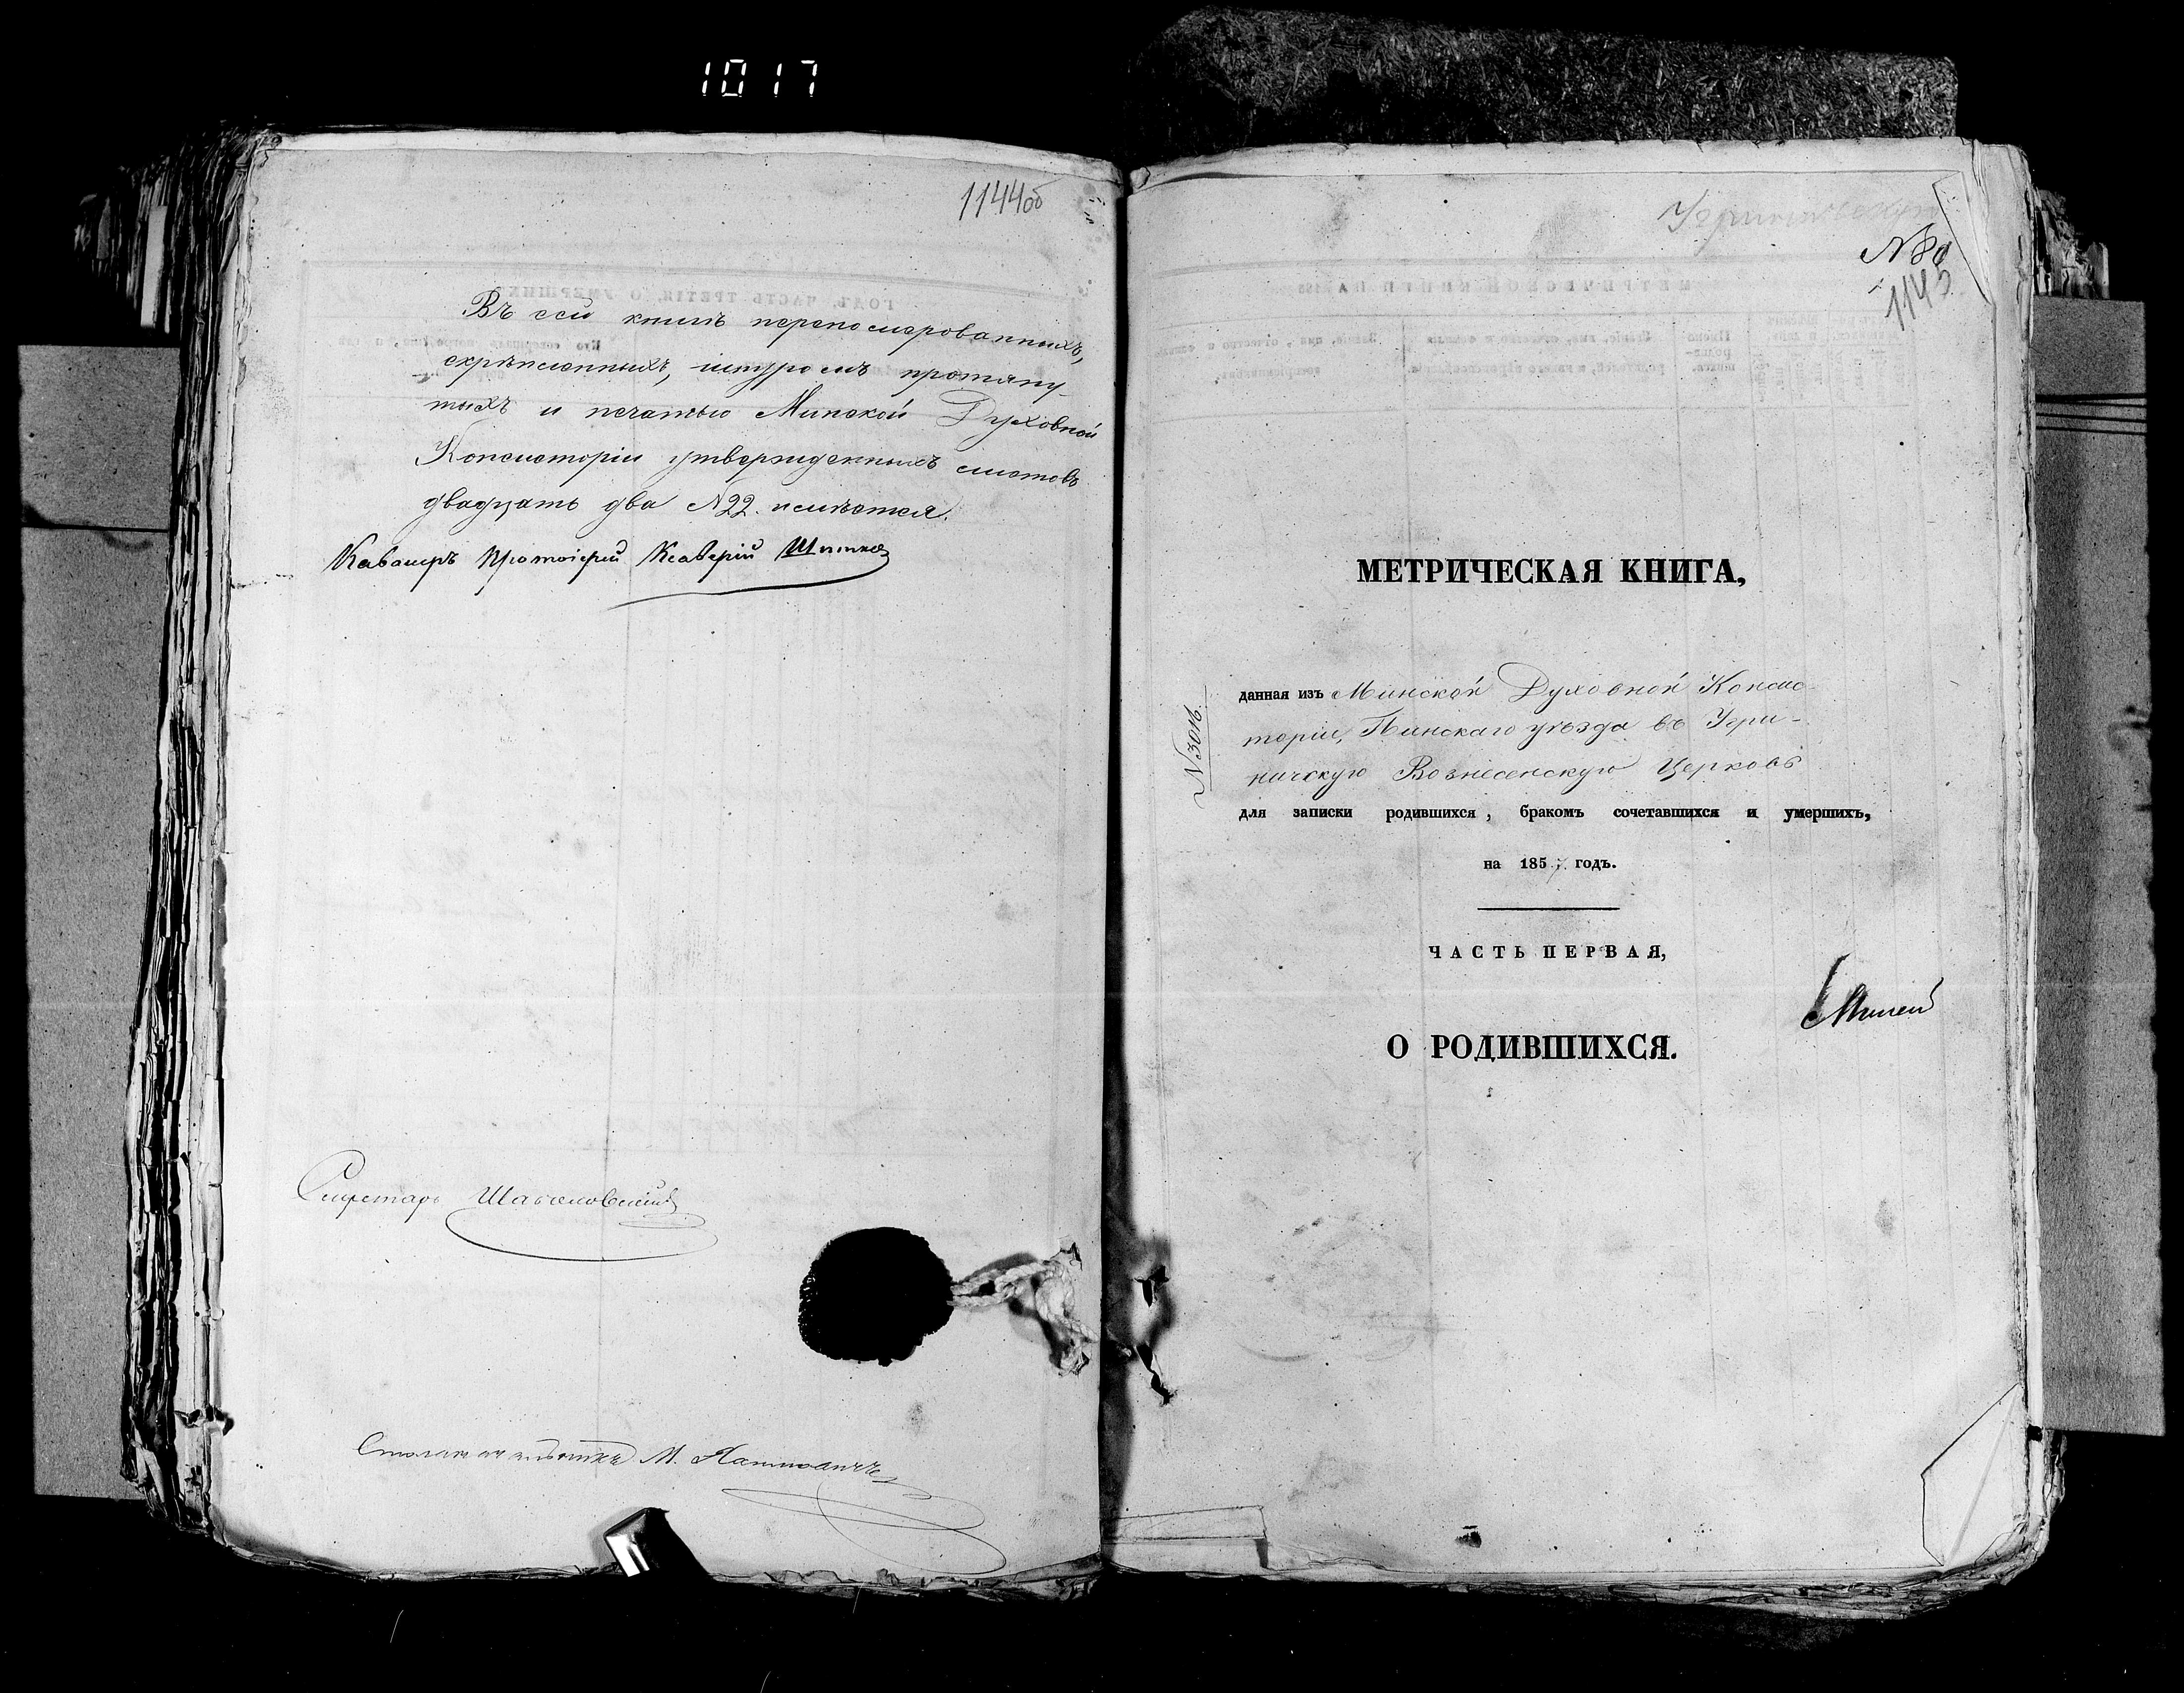 1017
1144об
Въ сей книгѣ перенумерованныхъ,
скрѣпленныхъ, шнуромъ протяну-
тыхъ и печатью Минской Духовной
Консисторіи утвержденныхъ листовъ
двадцать два №22. имѣется.
Каѳалеръ Протоіерей Ксаверій
Секретарь
Столоначальникъ М.
№
1145
МЕТРИЧЕСКАЯ КНИГА,
№3016.
данная изъ Минской Духовной Консис-
торіи, Пинскаго уѣзда въ Угри-
ничскую Вознесенскую Церковь
для записки родившихся, бракомъ сочетавшихся и умершихъ,
на 1857 годъ.
ЧАСТЬ ПЕРВАЯ,
О РОДИВШИХСЯ.